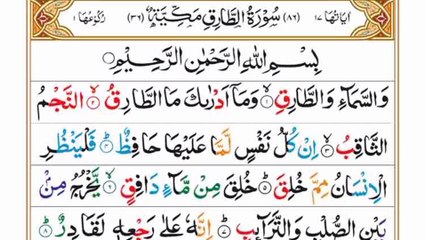 اٰيَاتُهَا ١٧ (٨٦) سُوْرَةُ الطَّارِقِ مَكِّيَّةٌ (٣٦) رُكُوْعُهَا ١
بِسْمِ اللّٰهِ الرَّحْمٰنِ الرَّحِيْمِ
وَالسَّمَآءِ وَالطَّارِقِ ۙ‏﴿۱﴾ وَمَاۤ اَدْرٰىكَ مَا الطَّارِقُ ۙ‏﴿۲﴾ النَّجْمُ
الثَّاقِبُ ۙ‏﴿۳﴾ اِنْ كُلُّ نَفْسٍ لَّمَّا عَلَيْهَا حَافِظٌ ؕ‏﴿۴﴾ فَلْيَنْظُرِ
الْاِنْسَانُ مِمَّ خُلِقَ ؕ‏﴿۵﴾ خُلِقَ مِنْ مَّآءٍ دَافِقٍ ۙ‏﴿۶﴾ يَّخْرُجُ مِنْۢ
بَيْنِ الصُّلْبِ وَالتَّرَآئِبِ ؕ‏﴿۷﴾ اِنَّهٗ عَلٰى رَجْعِهٖ لَقَادِرٌ ؕ‏﴿۸﴾